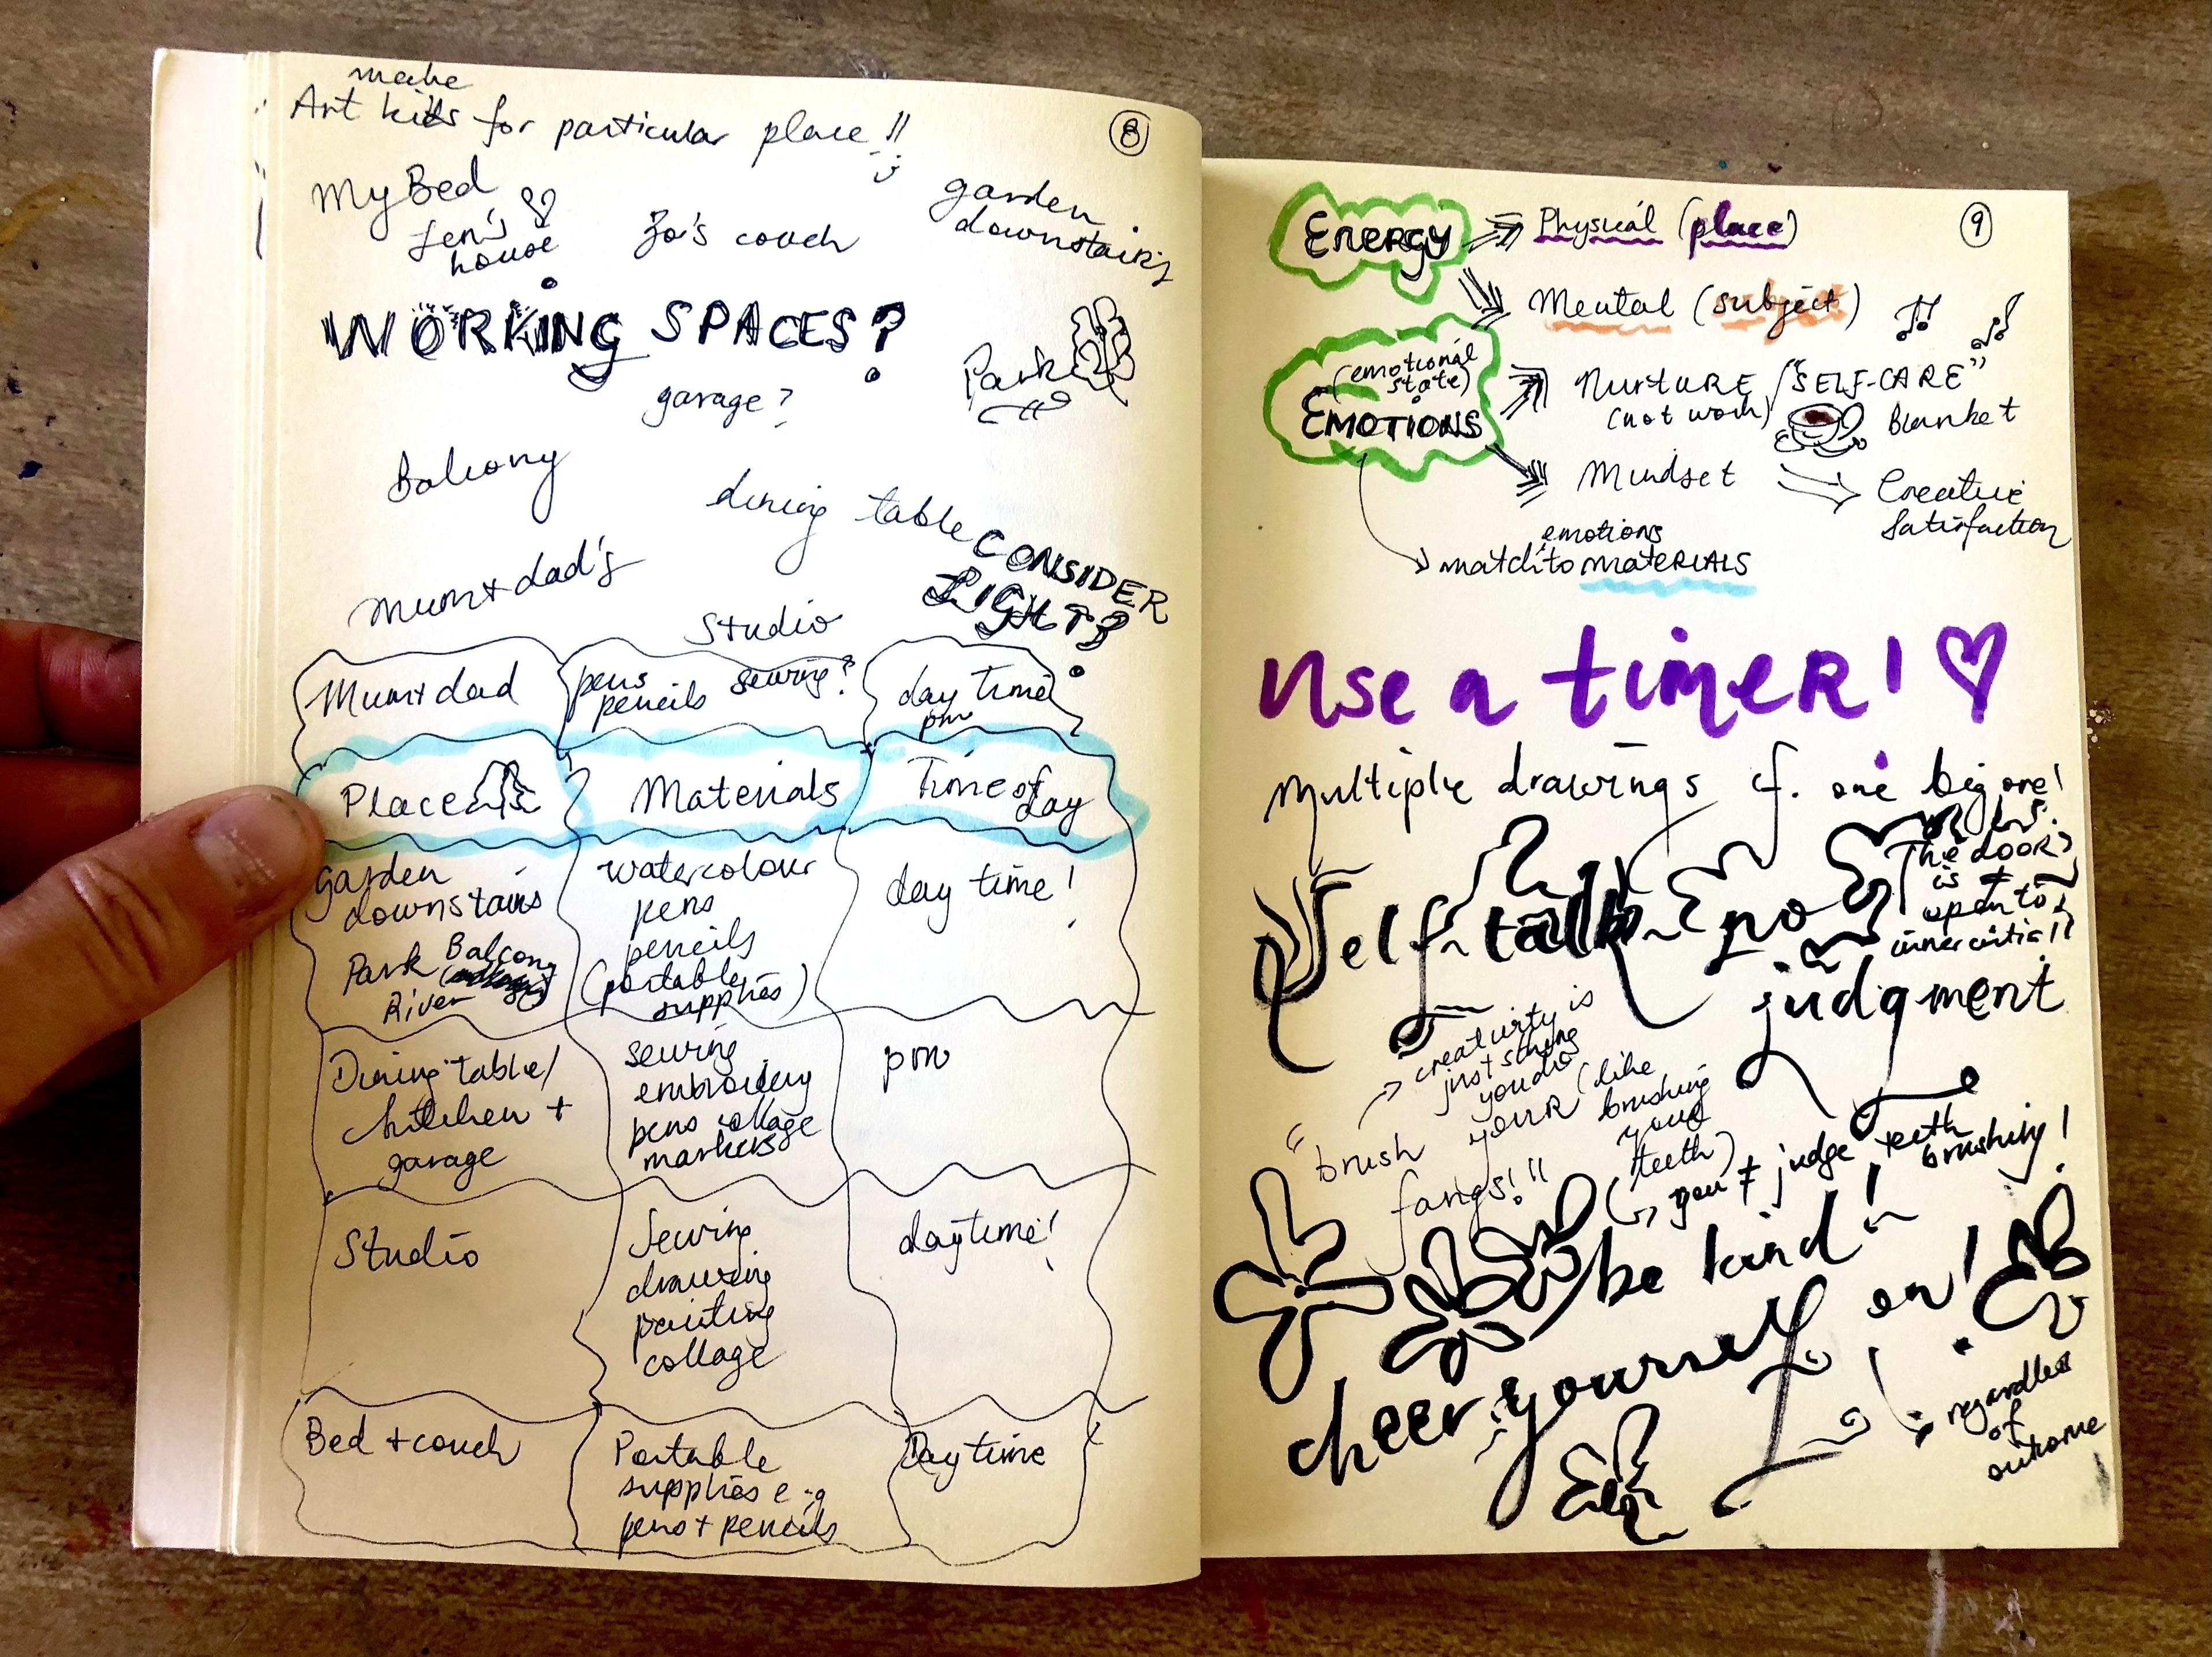 make
Art kits for particular place!!
8
My Bed
Jen's
house
Zo's couch
garden
downstairs
WORKING SPACES?
garage?
Park
Balcony
dining table
CONSIDER
LIGHT?
Mum + dad's
Studio
Mum + dad
pens sewing?
pencils
day time
pm
Place
Materials
Time of
day
garden
downstairs
Park Balcony
River
watercolour
pens
pencils
(portable
supplies)
day time!
Dining table/
kitchen +
garage
sewing
embroidery
pens collage
markers
pm
Studio
Sewing
drawing
painting
collage
daytime!
Bed + couch
Portable
supplies e.g
pens + pencils
Daytime
9
ENERGY
Physical (place)
Mental (subject)
(emotional
state)
EMOTIONS
NURTURE / "SELF-CARE"
(not work)
Blanket
Mindset
Creative
Satisfaction
emotions
match to MATERIALS
Use a timeR!
Multiple drawings cf. one big one!
The door
is
open to
inner critic!!
Self-talk
no
judgment
creativity is
just something
you do
(like
brushing
your
teeth)
"brush your
fangs!!"
you ≠ judge teeth
brushing!
be kind!
cheer yourself on!
regardless
of
outcome